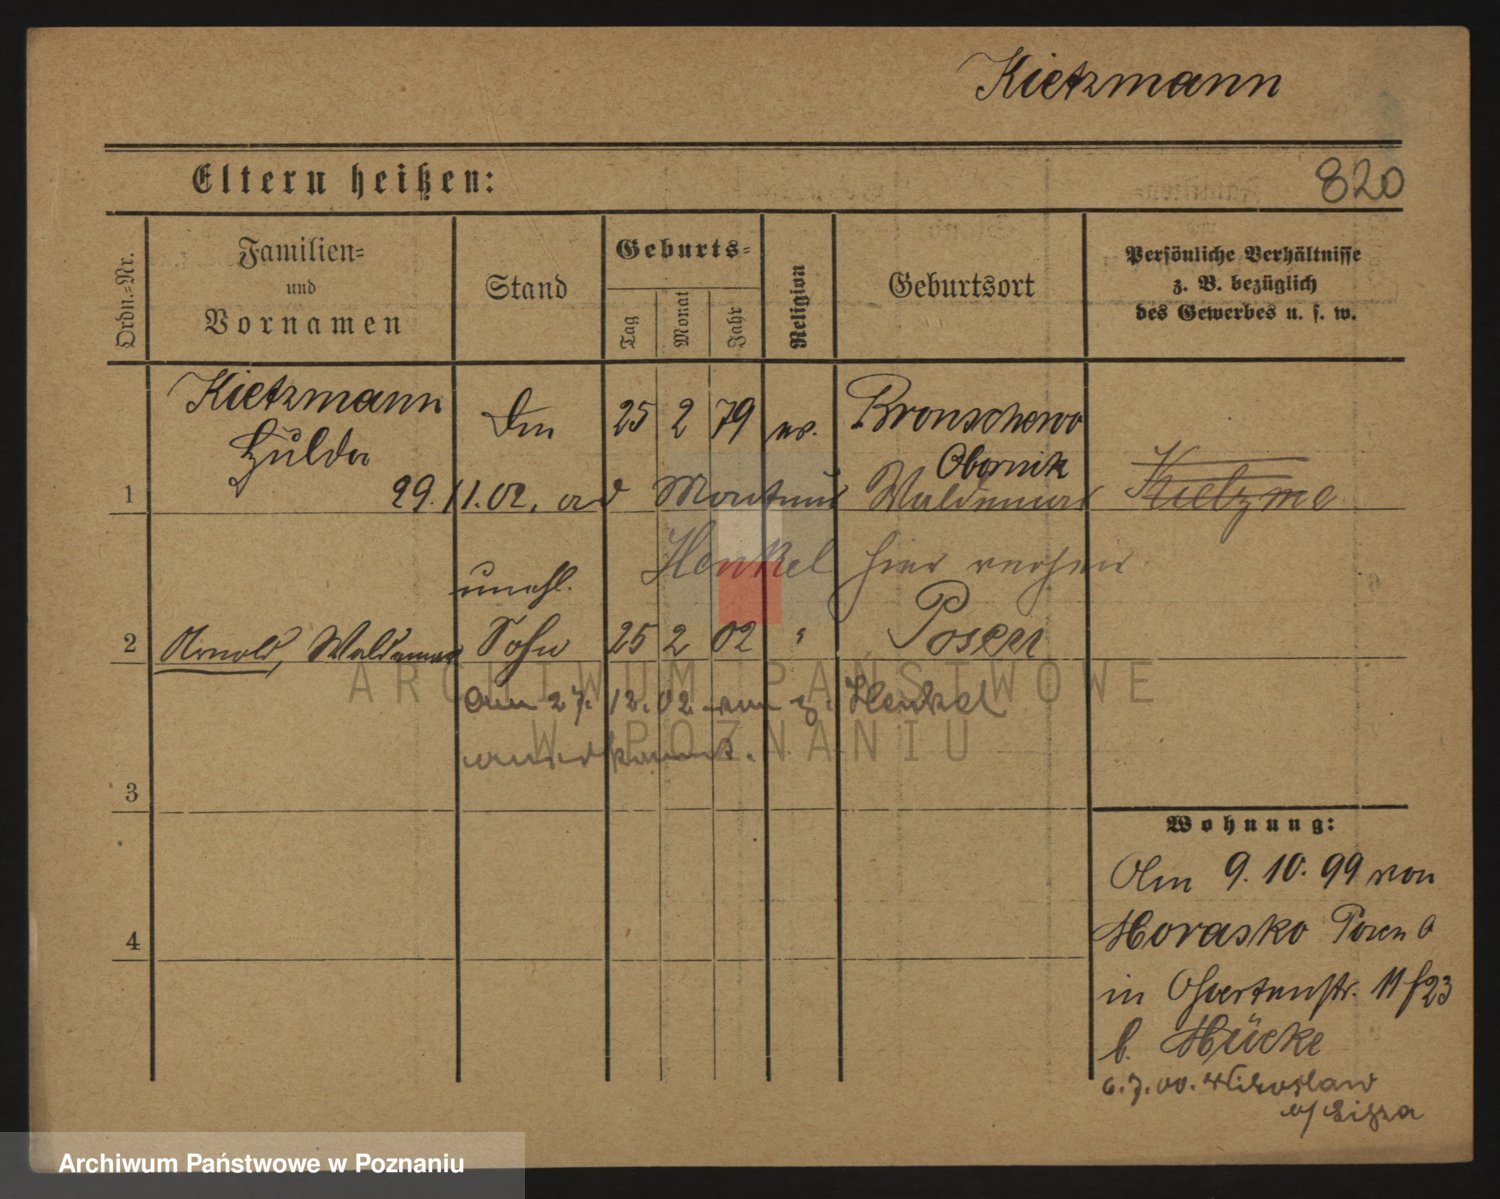 Kietzmann
Eltern heißen:
820
Ordn.=Nr.
Familien=
und
Vornamen
Stand
Geburts=
Tag
Monat
Jahr
Religion
Geburtsort
Persönliche Verhältnisse
z. B. bezüglich
des Gewerbes u. s. w.
1
Kietzmann
Hulda
25 2 79 ev.
Bronschewo
Obornik
29.11.02.
Waldemar
Henkel hier
unehl.
2 Arnold, Waldemar Sohn 25 2 02 " Posen
am 27. 12. 02 von g. Henkel
anerkannt.
3
4
Wohnung:
Am 9. 10. 99 von
Morasko Posen O
in Gartenstr. 11 f 23
b. Mücke
6.7.00. Miloslaw
ARCHIWUM PAŃSTWOWE
W POZNANIU
Archiwum Państwowe w Poznaniu